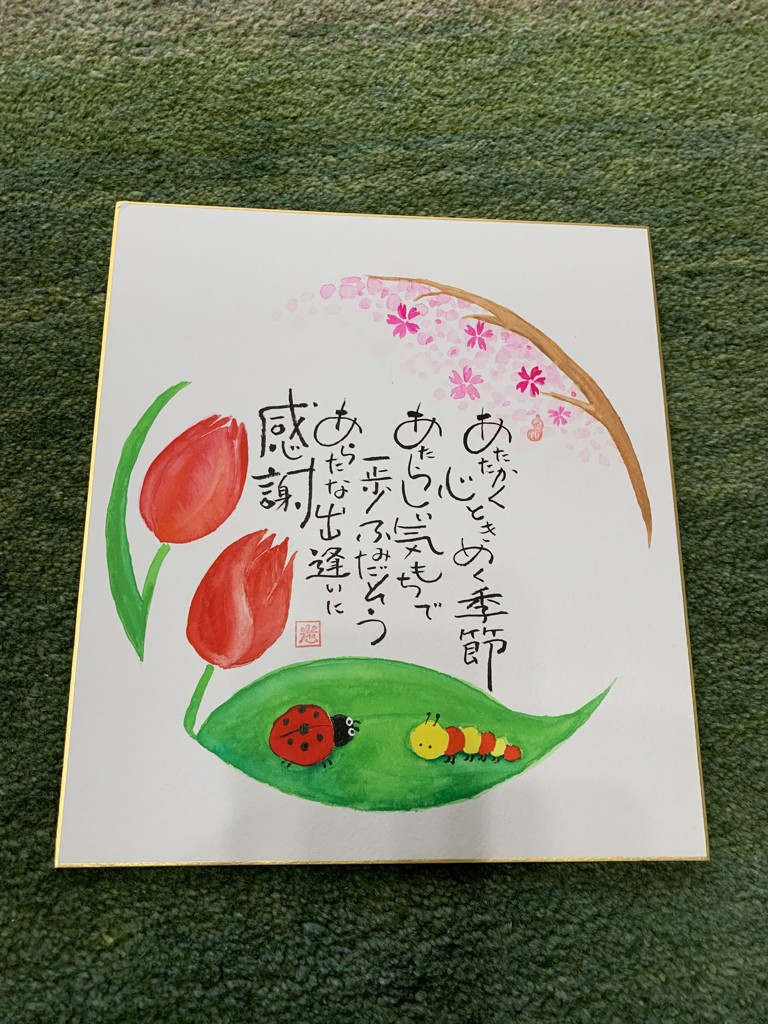 あたたかく
心ときめく季節
あたらしい気もちで
一歩ふみだそう
あらたな出逢いに
感謝